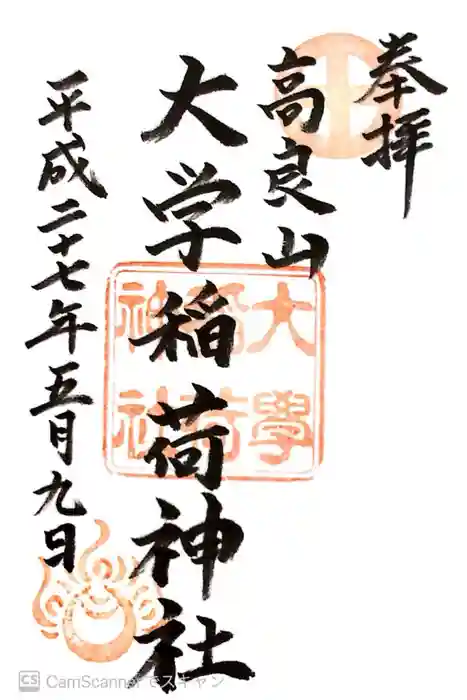 奉拝
高良山
大学稲荷神社
平成二十七年五月九日
大學
稲荷
神社
CS CamScannerでスキャン